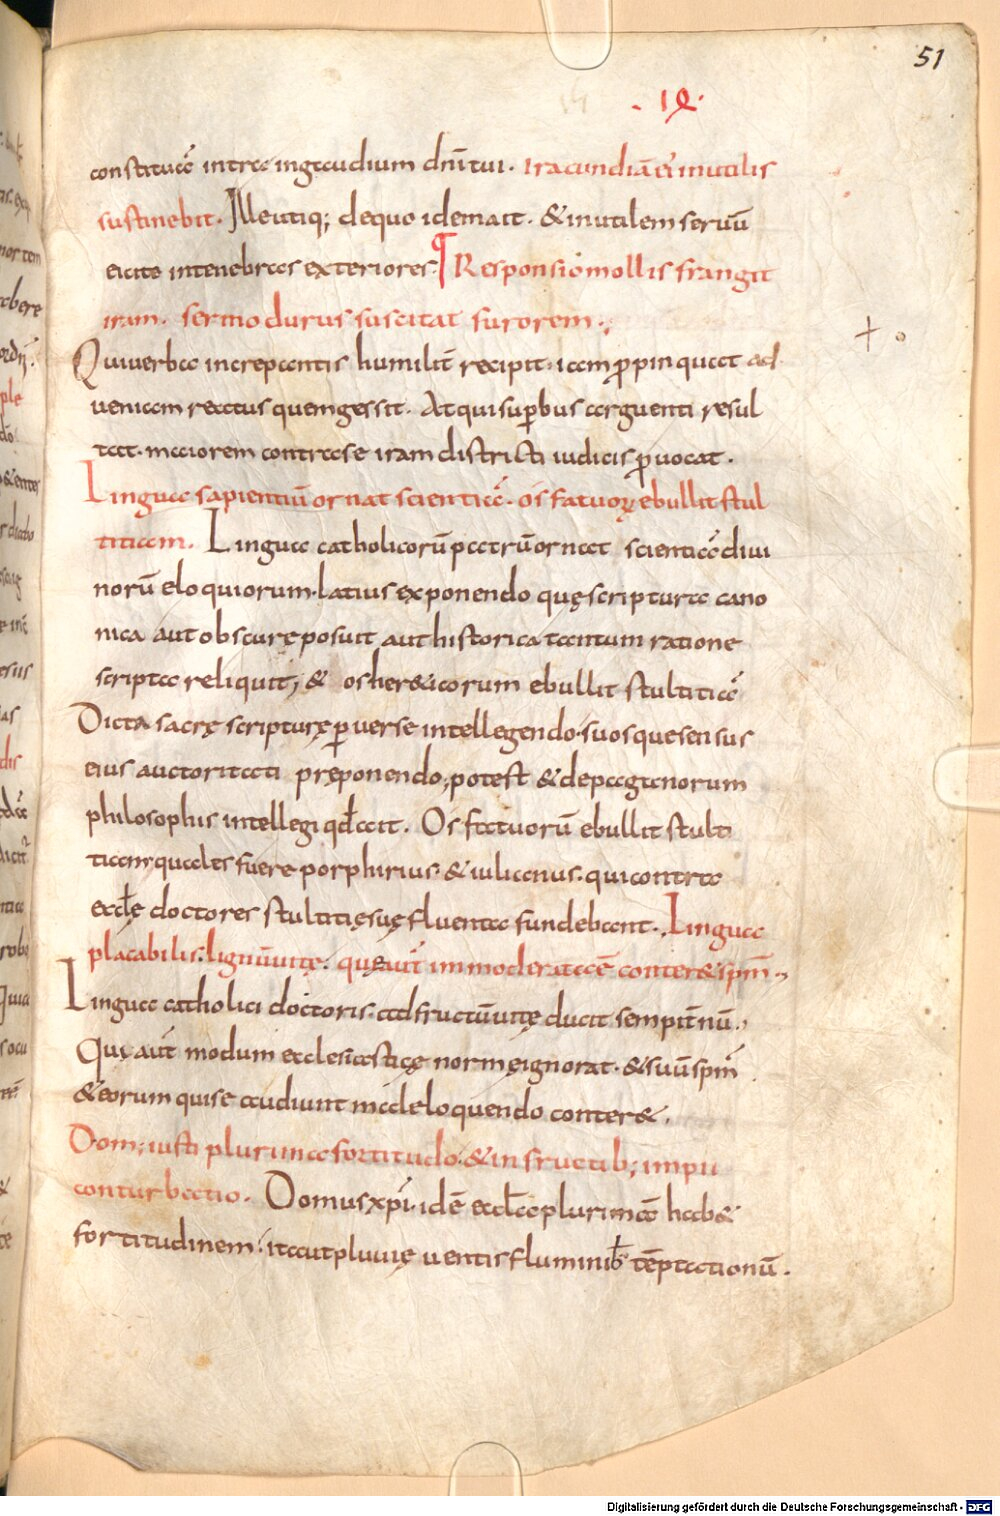 51
· 19 ·
constituā intra ingaudium dn̄i tui. Iracundiā ei inutilis
sustinebit. Ille utiq; de quo idem ait. & inutilem seruū
eicite intenebras exteriores. Responsio mollis frangit
iram. sermo durus suscitat furorem.
Qui uerba increpantis humilit̄ recipit. iam ꝓpinquat ad
ueniam reatus quem gessit. At qui suꝑbus arguenti resul
tat. maiorem contra se iram districti iudicis ꝓuocat.
Lingua sapientiū ornat scientiā. os fatuoꝝ ebullit stul
titiam. Lingua catholicorū patrū ornat scientiā diui
norū eloquiorum. latius exponendo quę scriptura cano
nica aut obscurę posuit aut historica tantum ratione
scripta reliquit; & os her&icorum ebullit stultitiā
Dicta sacrę scripturę ꝑuerse intellegendo. suosque sensus
eius auctoritati pręponendo; potest & de paganorum
philosophis intellegi qd̄ ait. Os fatuorū ebullit stulti
tiam quales fuere porphirius. & iulianus. qui contra
eccl̄ę doctores stultitię suę fluenta fundebant. Lingua
placabilis. lignū uitę. quę aut̄ immoderata ē conter& sp̄m.
Lingua catholici doctoris. ad fructū uitę ducit sempit̄nū.
Qui aut̄ modum ecclesiasticę normę ignorat. & suū sp̄m
& eorum qui se audiunt male loquendo conter&.
Dom; iusti plurima fortitudo. & in fructib; impii
conturbatio. Domus xp̄i. idē eccl̄a plurimā hab&
fortitudinem. ita ut pluuię uentis fluminib̄ tēptationū.
Digitalisierung gefördert durch die Deutsche Forschungsgemeinschaft - DFG